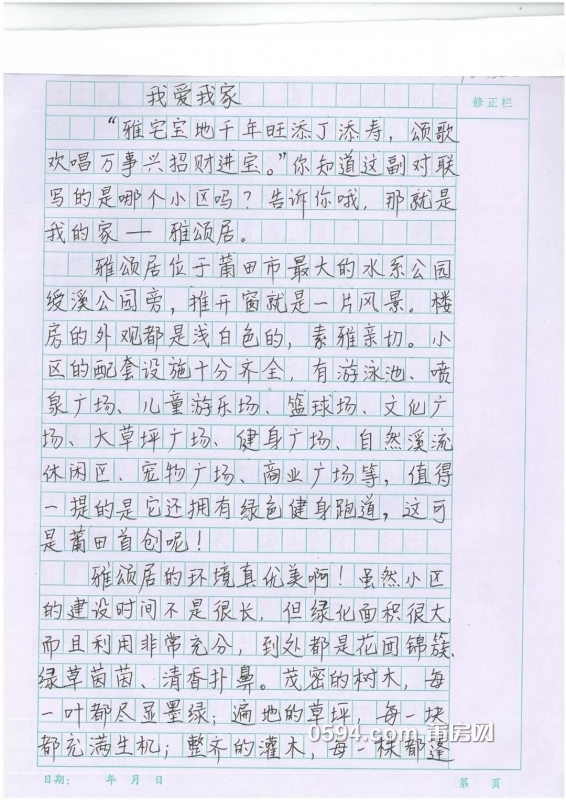 我爱我家
修正栏
“雅宅宝地千年旺添丁添寿，颂歌
欢唱万事兴招财进宝。”你知道这副对联
写的是哪个小区吗？告诉你哦，那就是
我的家——雅颂居。
雅颂居位于莆田市最大的水系公园
绶溪公园旁，推开窗就是一片风景。楼
房的外观都是浅白色的，素雅亲切。小
区的配套设施十分齐全，有游泳池、喷
泉广场、儿童游乐场、篮球场、文化广
场、大草坪广场、健身广场、自然溪流
休闲区、宠物广场、商业广场等，值得
一提的是它还拥有绿色健身跑道，这可
是莆田首创呢！
雅颂居的环境真优美啊！虽然小区
的建设时间不是很长，但绿化面积很大，
而且利用非常充分，到处都是花团锦簇、
绿草茵茵、清香扑鼻。茂密的树木，每
一叶都尽显墨绿；遍地的草坪，每一块
都充满生机；整齐的灌木，每一株都蓬
0594.com 莆房网
日期： 年 月 日
第 页